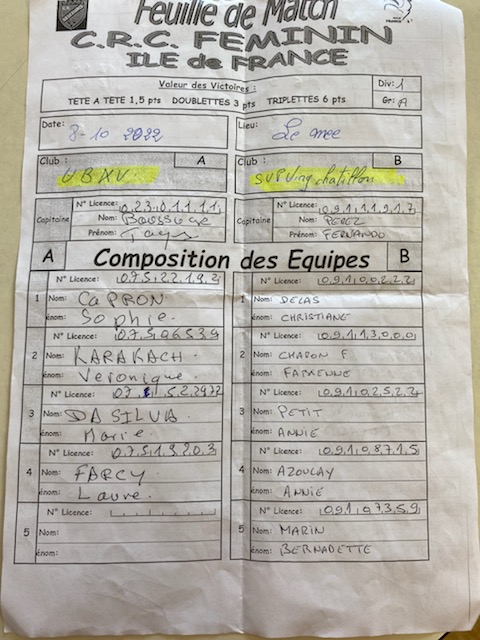 Feuille de Match
C.R.C. FEMININ
ILE de FRANCE
Valeur des Victoires :
TETE A TETE 1,5 pts DOUBLETTES 3 pts TRIPLETTES 6 pts
Div: 1
Gr: A
Date: 8-10 2022
Lieu: Le mee
Club : A
UBXV
Club : B
SVPVing chatillon
Capitaine
N° Licence: 0.2.3.0.1.1.1.1
Nom:
Prénom:
Capitaine
N° Licence: 0.9.1.1.1.9.1.7
Nom: PEREZ
Prénom: FERNANDO
A Composition des Equipes B
1
N° Licence: 0.7.5.2.2.1.9.2
Nom: CAPRON
énom: Sophie.
2
N° Licence: 0.7.5.0.6.5.3.9
Nom: KARAKACH.
énom: Veronique.
3
N° Licence:
Nom: DA SILVA
énom: Marie.
4
N° Licence: 0.7.5.1.9.2.0.3
Nom: FARCY
énom: Laure.
5
N° Licence:
Nom:
énom:
1
N° Licence: 0.9.1.0.0.2.2.2
Nom: DECAS
énom: CHRISTIANE
2
N° Licence: 0.9.1.1.3.0.0.0
Nom: CHARON F
énom: FABIENNE
3
N° Licence: 0.9.1.0.2.5.2.2
Nom: PETIT
énom: ANNIE
4
N° Licence: 0.9.1.0.8.7.1.5
Nom: AZOULAY
énom: ANNIE
5
N° Licence: 0.9.1.0.7.3.5.9
Nom: MARIN
énom: BERNADETTE